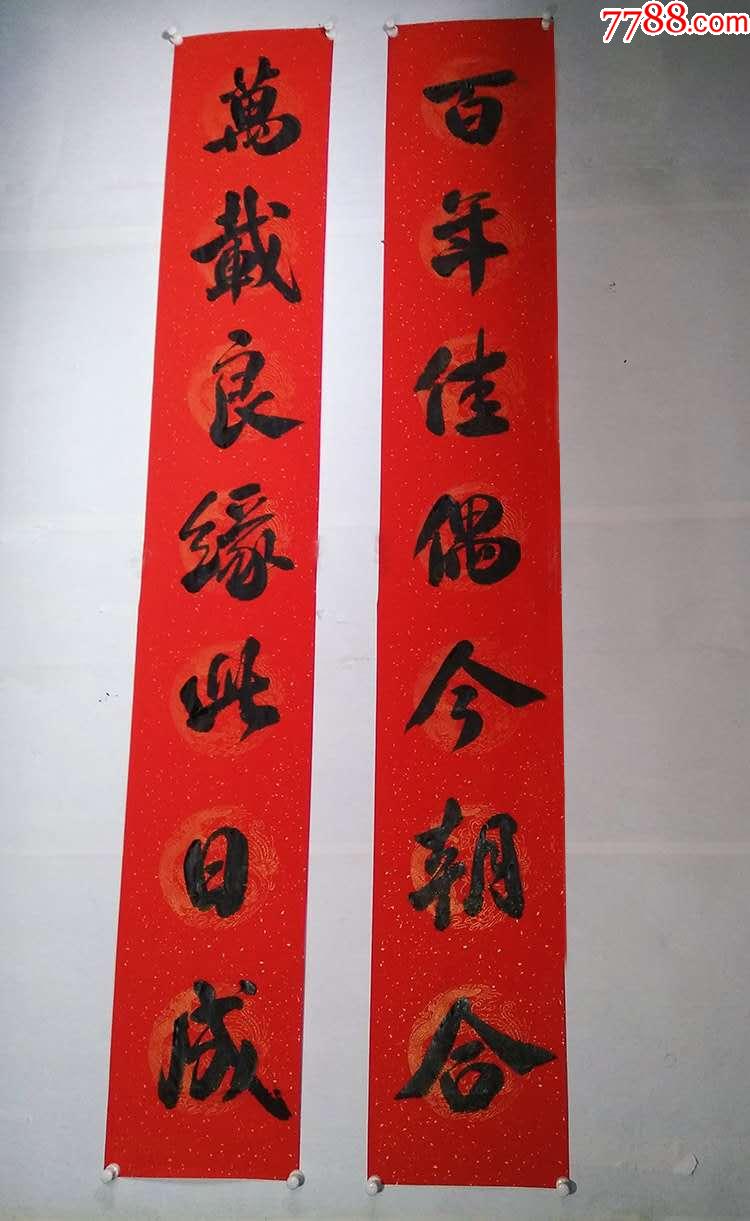 7788.com
百年佳偶今朝合
萬載良緣此日成